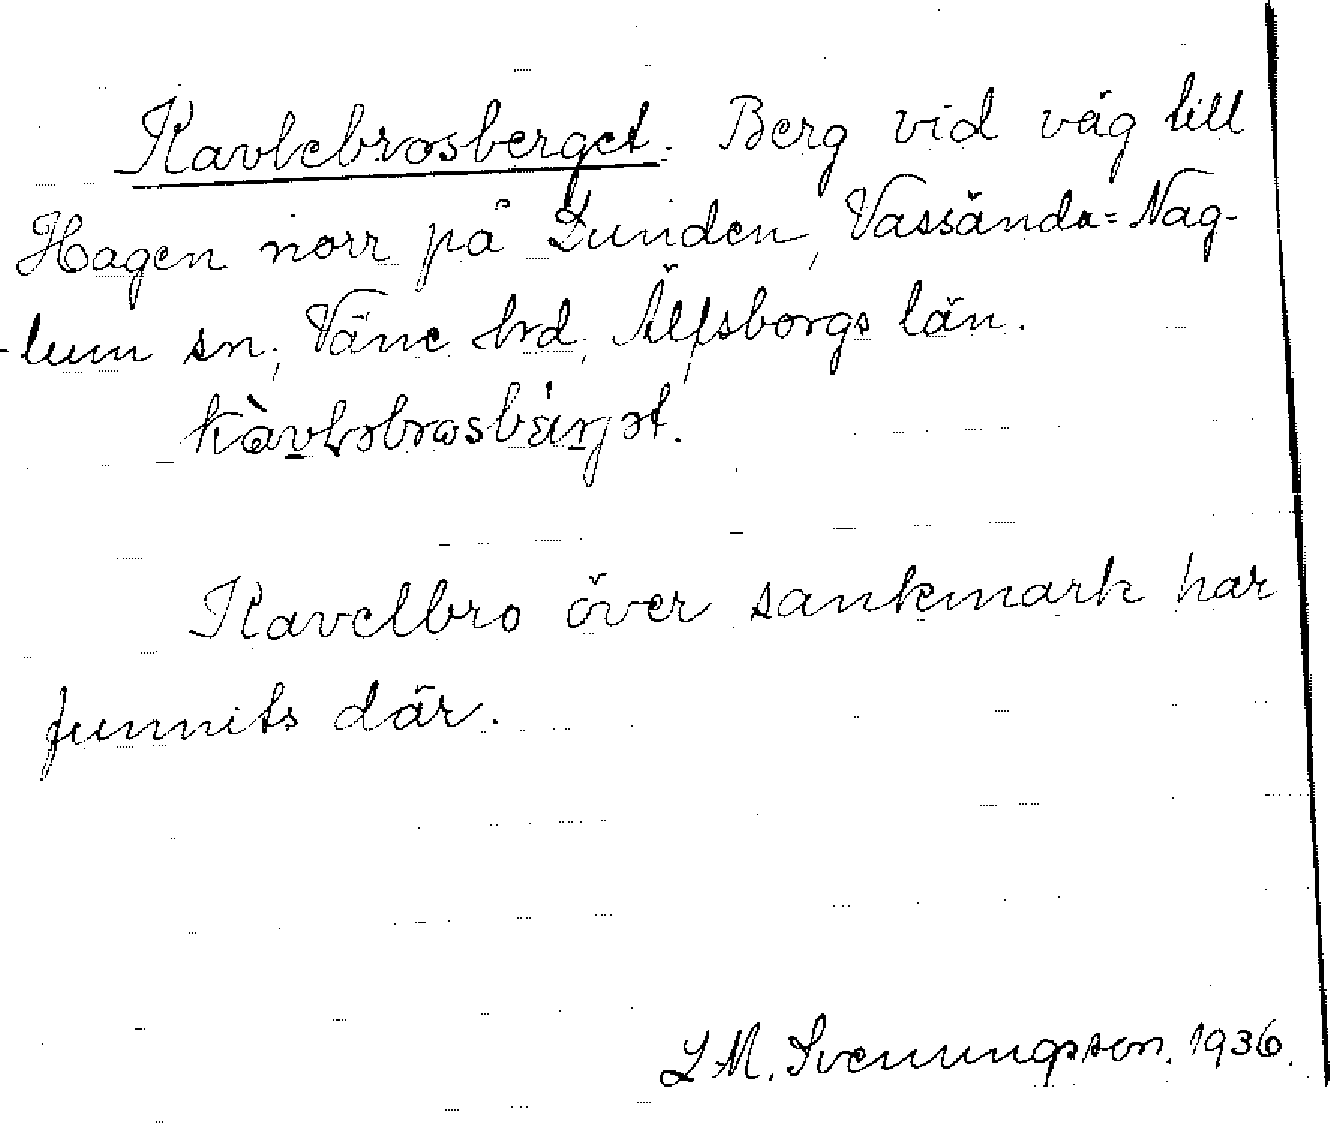 Kavlebrosberget. Berg vid väg till
Hagen norr på Lunden, Vassända=Nag-
-lum sn, Väne hrd, Älfsborgs län.
Kavelbro över sankmark har
funnits där.
L M. Svenungsson. 1936.